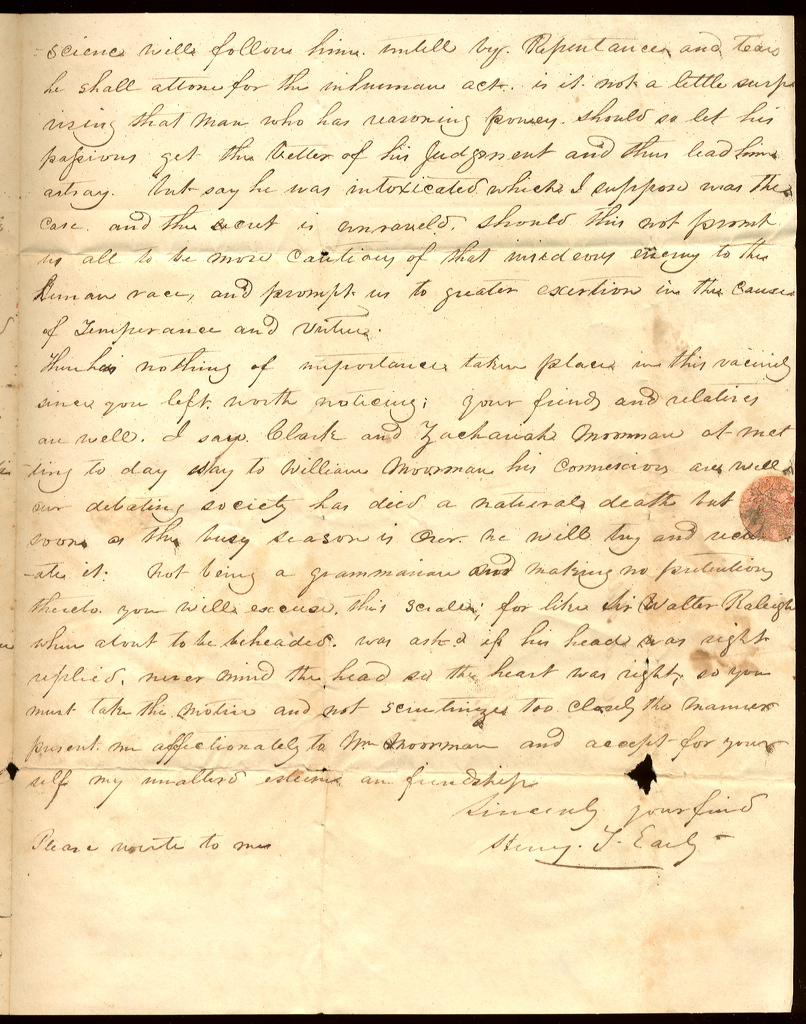 -science will follow him. untill by. Repentance and tears
he shall attone for the inhuman act. is it not a little surp
rising that man who has reasoning powers. should so let his
passions get the better of his Judgment and thus lead him
astray. but say he was intoxicated which I suppose was the
case. and the secret is unraveld. should this not promt
us all to be more cautious of that insideous enemy to the
human race, and prompt us to greater exertion in the cause
of Temperance and virtue.
There has nothing of importance taken place in this vacinity
since you left. worth noticing; your friends and relatives
are well. I saw Clark and Zachariah Moorman at met
ting to day say to William Moorman his connexions are well
our debating society has died a natural death but
soon as the busy season is over. we will try and
-ate it. not being a grammarian and making no pretentions
thereto you will excuse this; for like Sir Walter Raleigh
when about to be beheaded. was asked if his head was right
replied, never mind the head so the heart was right, so you
must take the motive and not scrutinize too closely the manner
present me affectionately to Wm Moorman and accept for your
self my unalterd esteeme an friendship
Sincerely your friend
Henry. T. Early
Please write to me